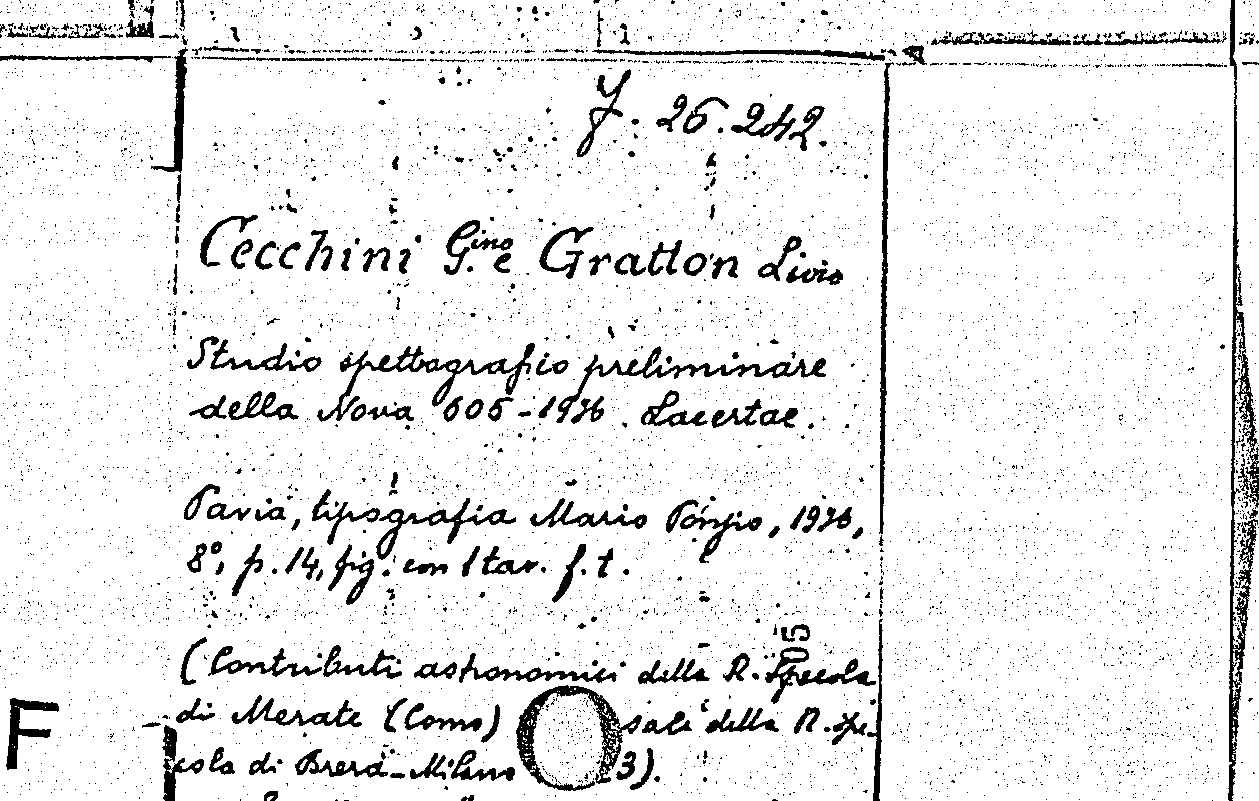 J. 26.242.
Cecchini Gino e Gratton Livio
Studio spettografico preliminare
della Nova 605-1936. Lacertae.
Pavia, tipografia Mario Ponzio, 1936,
8°, p. 14, fig. con 1 tav. f. t.
(Contributi astronomici della R. Specola
05
di Merate (Como) sali della R. Spe-
F
O
cola di Brera-Milano 3).